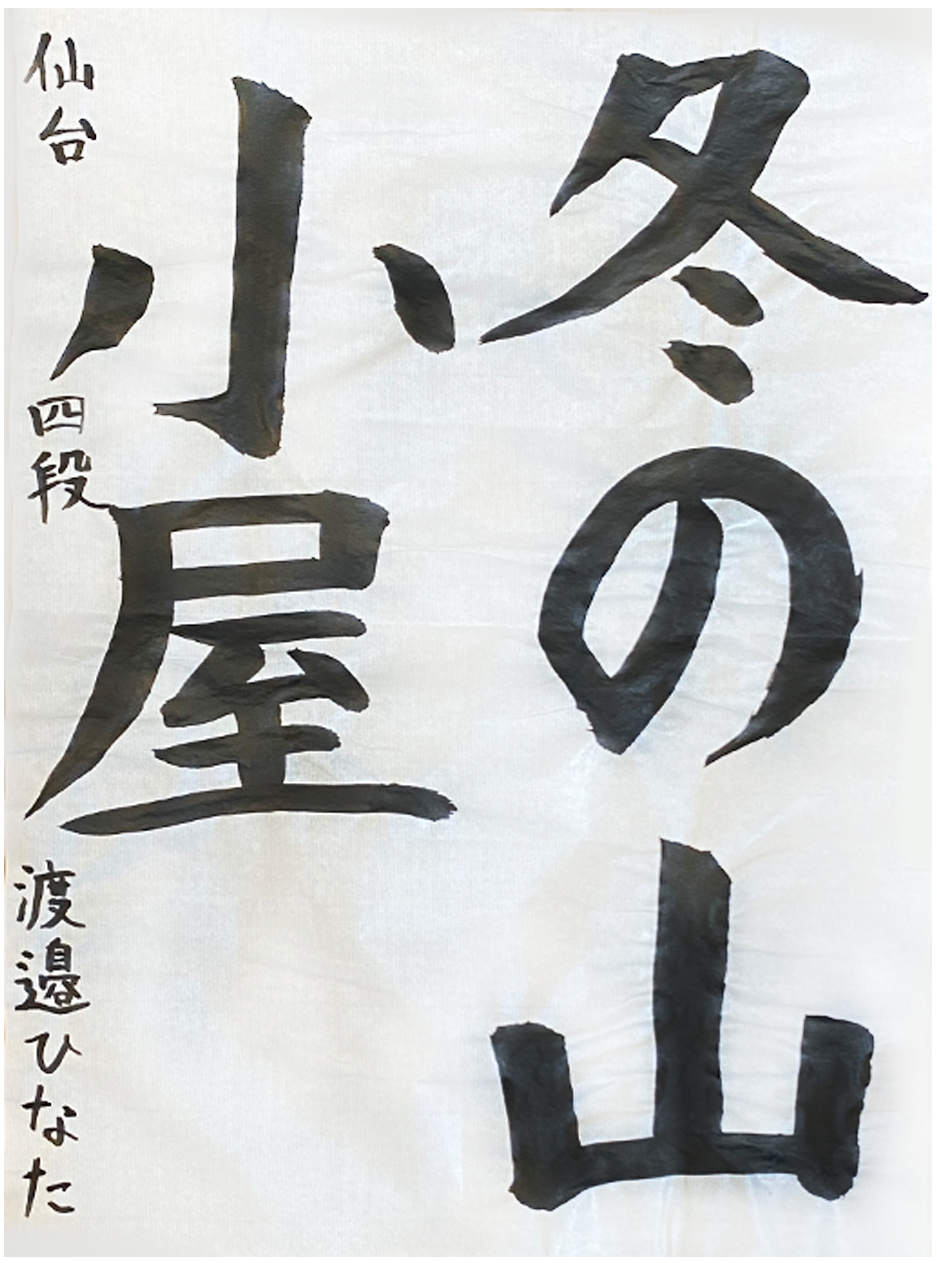 冬の山
小屋
仙台 四段 渡邉ひなた